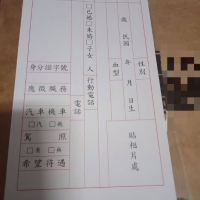 歲 民國 年 月 日生
性別
血型
□已婚□未婚□子女 人
行動電話
電話
身分證字號
應徵職務
汽車 機車
□有 □有
駕照
□無 □無
希望待遇
貼相片處